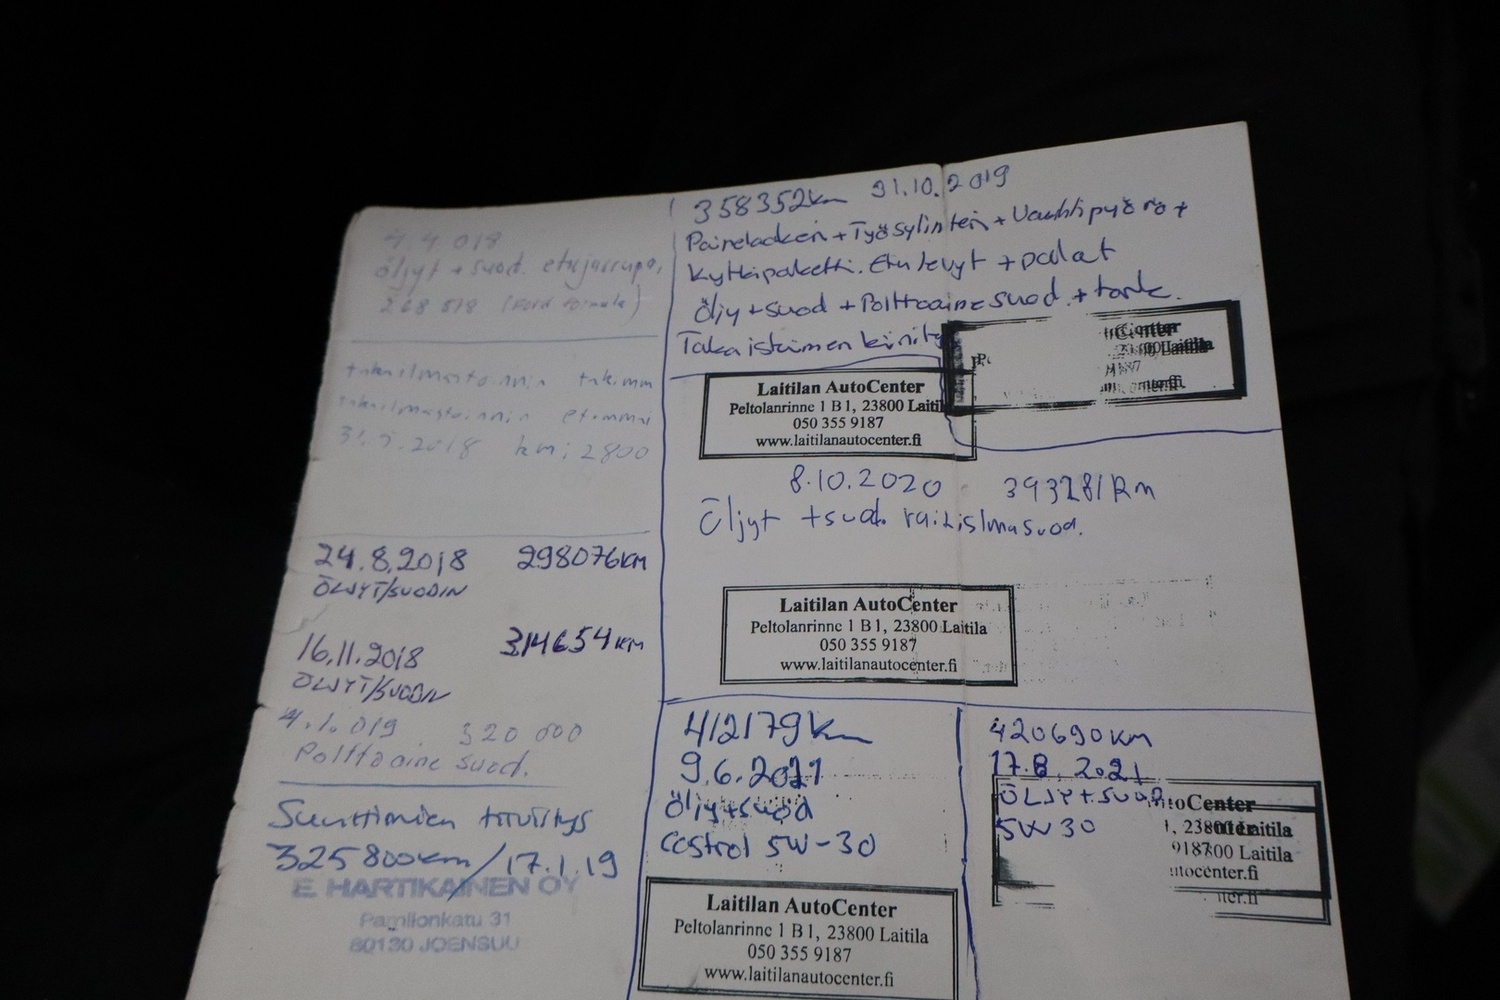 4.4.018
öljyt + suod. etujarrupa,
268 518
takailmastoinnin
takailmastoinnin
31.5.2018 km: 2800
24.8.2018 298076KM
ÖLJYT/SUODIN
16.11.2018 314654KM
ÖLJYT/SUODIN
4.1.019 320 000
Polttoaine suod.
Suuttimien tiivistys
325800km/17.1.19
E. HARTIKAINEN OY
Pamilonkatu 31
80130 JOENSUU
358352km 31.10.2019
Painelaakeri + Työsylinteri + Vauhtipyörä +
Kytkinpaketti. Etu levyt + palat
Öljy + suod + Polttoaine suod. + tark.
Taka iskarimen kiinitys
Center
Laitila
Laitilan AutoCenter
Peltolanrinne 1 B 1, 23800 Laitil
050 355 9187
www.laitilanautocenter.fi
8.10.2020 393281km
Öljyt + suod. raitisilmasuod.
Laitilan AutoCenter
Peltolanrinne 1 B 1, 23800 Laitila
050 355 9187
www.laitilanautocenter.fi
412179km
9.6.2021
öljy+suod
castrol 5W-30
Laitilan AutoCenter
Peltolanrinne 1 B 1, 23800 Laitila
050 355 9187
www.laitilanautocenter.fi
420690KM
17.8.2021
ÖLJY+SUOD
5W30
toCenter
1, 23800 Laitila
9187